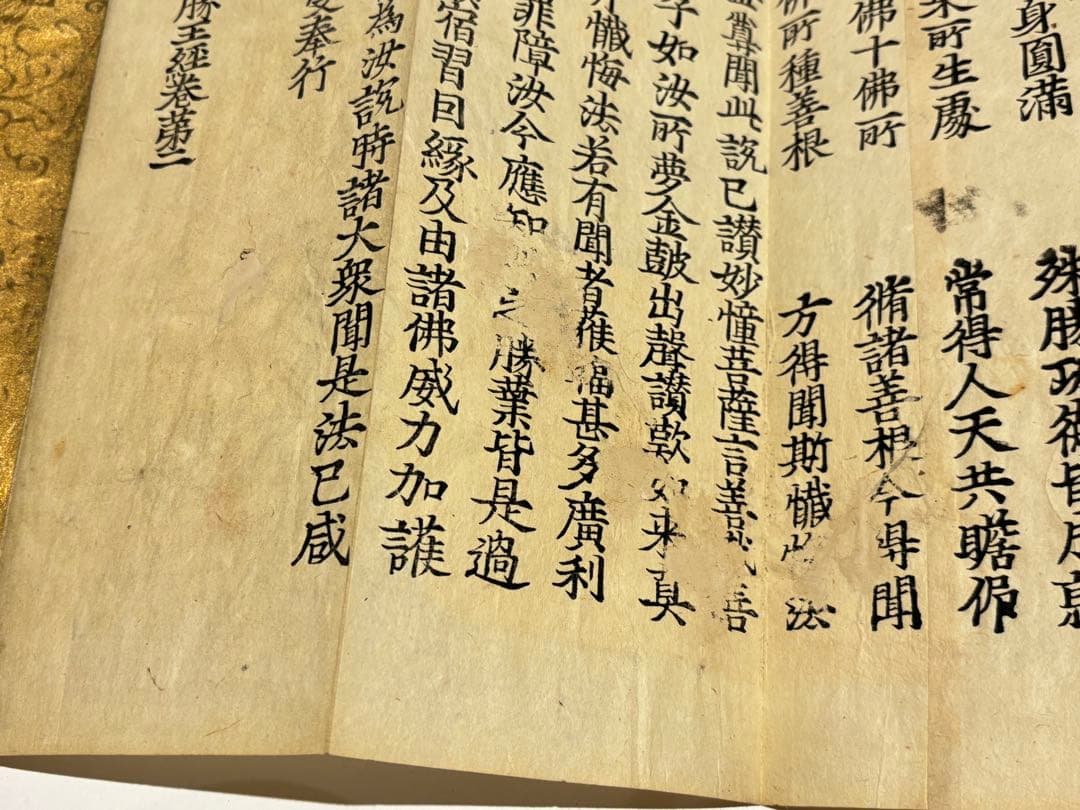 身圓滿 殊勝功德皆成
所生處 常得人天共瞻仰
佛十佛所 脩諸善根今得聞
所種善根 方得聞斯懺悔法
尊聞此說已讚妙幢菩薩言善哉善
子如汝所夢金鼓出聲讚歎如來真
懺悔法若有聞者獲福甚多廣利
罪障汝今應知之勝業皆是過
宿習因緣及由諸佛威力加護
為汝說時諸大衆聞是法已咸
奉行
勝王經卷第二